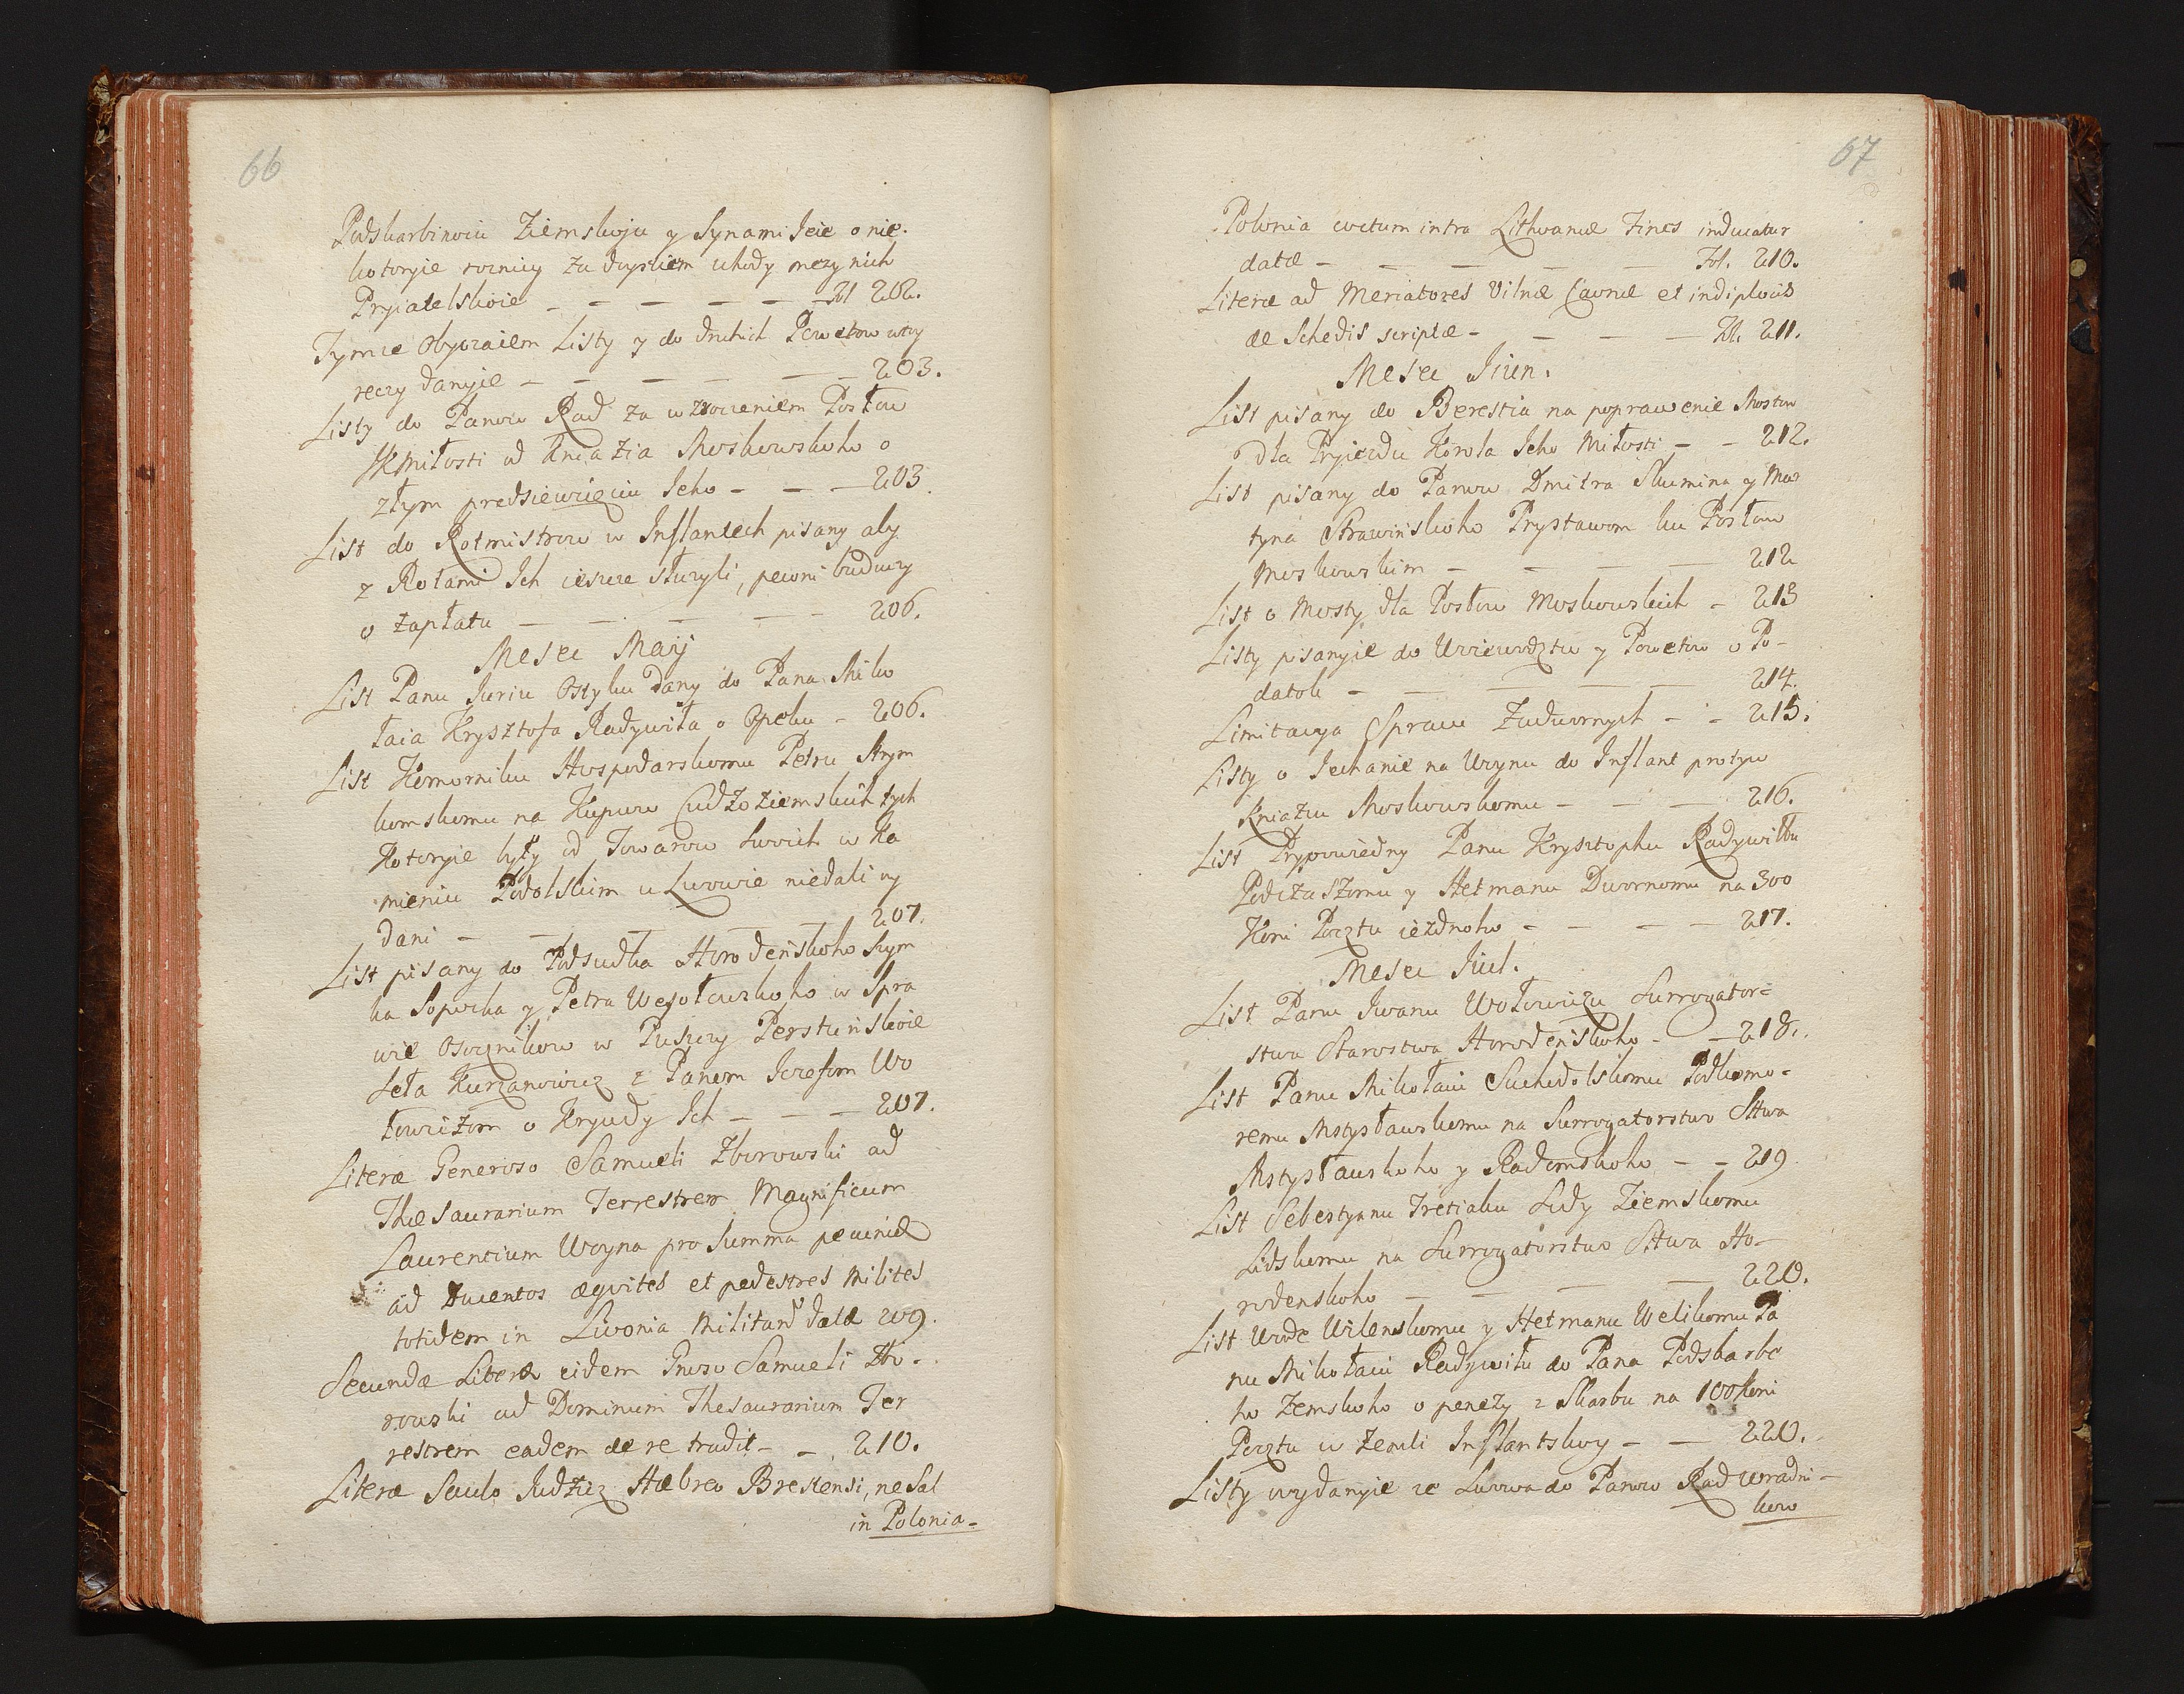 66
Podskarbinoiu Ziemskoju y Synami Jeie o nie-
kotoryie roznicy za dzysiem uhody mezy nich
Pryiatelskoie - - - - - - Fol 202.
Tymże obyczaiem Listy y do druhich Powetow wtoy
reczy danyie - - - - - - 203.
Listy do Panow Rad za wzroceniem Posłow
JKMiłosti od Kniazia Moskowskoho o
złym predsiewzięciu Jeho - - - 203.
List do Rotmistrow w Inflantech pisany aby
z Rotami Ich ieszcze służyli, pewni buduczy
o zapłatu - - - - - 206.
Mesec Maij
List Panu Juriu Ostyku dany do Pana Miko
łaia Krysztofa Radywiła o Opeku - 206.
List Komorniku Hospodarskomu Petru Strym
komskomu na Kupcow Cudzoziemskich tych
Kotoryie cyły od Towarow Swoich w Ka
mieniu Podolskim u Lwowie niedali wy
dani - - - - - 207.
List pisany do Podsudka Horodeńskoho Szym
ka Sopocka y Petra Wesołowskoho w Spra
wie Osocznikow w Puszczy Perstuńskoie
Seła Kurzanowicz z Panom Jozefom Wo
łowiczom o Krywdy Ich - - - 207.
Literæ Generoso Samueli Zborowski ad
Thesaurarium Terrestrem Magnificum
Laurentium Woyna pro summa pecuniæ
ad Ducentos æquites et pedestres milites
totidem in Livonia militand datæ 209.
Secundæ Literæ eidem Gnroso Samueli Zbo-
rowski ad Dominum Thesaurarium Ter
restrem eadem de re tradit - - 210.
Literæ Saulo Judzicz Hæbreo Brestensi, ne Sal
in Polonia-
67
Polonia coctum intra Lithvaniæ Fines inducatur
datæ - - - - - Fol. 210.
Literæ ad Mercatores Vilnæ Caunæ et in diplocis
de Schedis scriptæ - - - - Fol. 211.
Mesec Jiun.
List pisany do Berestia na poprawenie Mostow
dla Pryiezdu Korola Jeho Miłosti - - 212.
List pisany do Panow Dmitra Skumina y Mar
tyna Strawinskoho Prystawom ku Posłow
Moskowskim - - - - 212
List o Mosty dla Posłow Moskowskich - 213
Listy pisanyie do Woiewodztw y Powetow o Po-
datok - - - - 214.
Limitacya Spraw Zadwornych - - 215.
Listy o Jechanie na Woynu do Inflant protyw
Kniaziu Moskowskomu - - - 216.
List Prypowiedny Panu Krysztophu Radywiłłu
Podczaszomu y Hetmanu Dwornomu na 300
Koni Pocztu iezdnoho - - - - 217.
Mesec Jiul.
List Panu Iwanu Wołowiczu Surrogator=
stwa Starostwa Horodenskoho - - 218.
List Panu Mikołaiu Suchodolskomu Podkomo-
remu Mstysławskomu na Surrogatorstwo Sttwa
Mstysławskoho y Radomskoho - - 219
List Sebestyanu Tretiaku Sudy Ziemskomu
Lidskomu na Surrogatorstwo Sttwa Ho-
rodenskoho - - - - 220.
List Wode Wilenskomu y Hetmanu Welikomu Pa
nu Mikołaiu Radywiłu do Pana Podskarbe
ho Zemskoho o penezy z Skarbu na 100 koni
Pocztu w Zemli Inflantskoy - - 220.
Listy wydanyie ze Lwowa do Panow Rad wradni-
kow